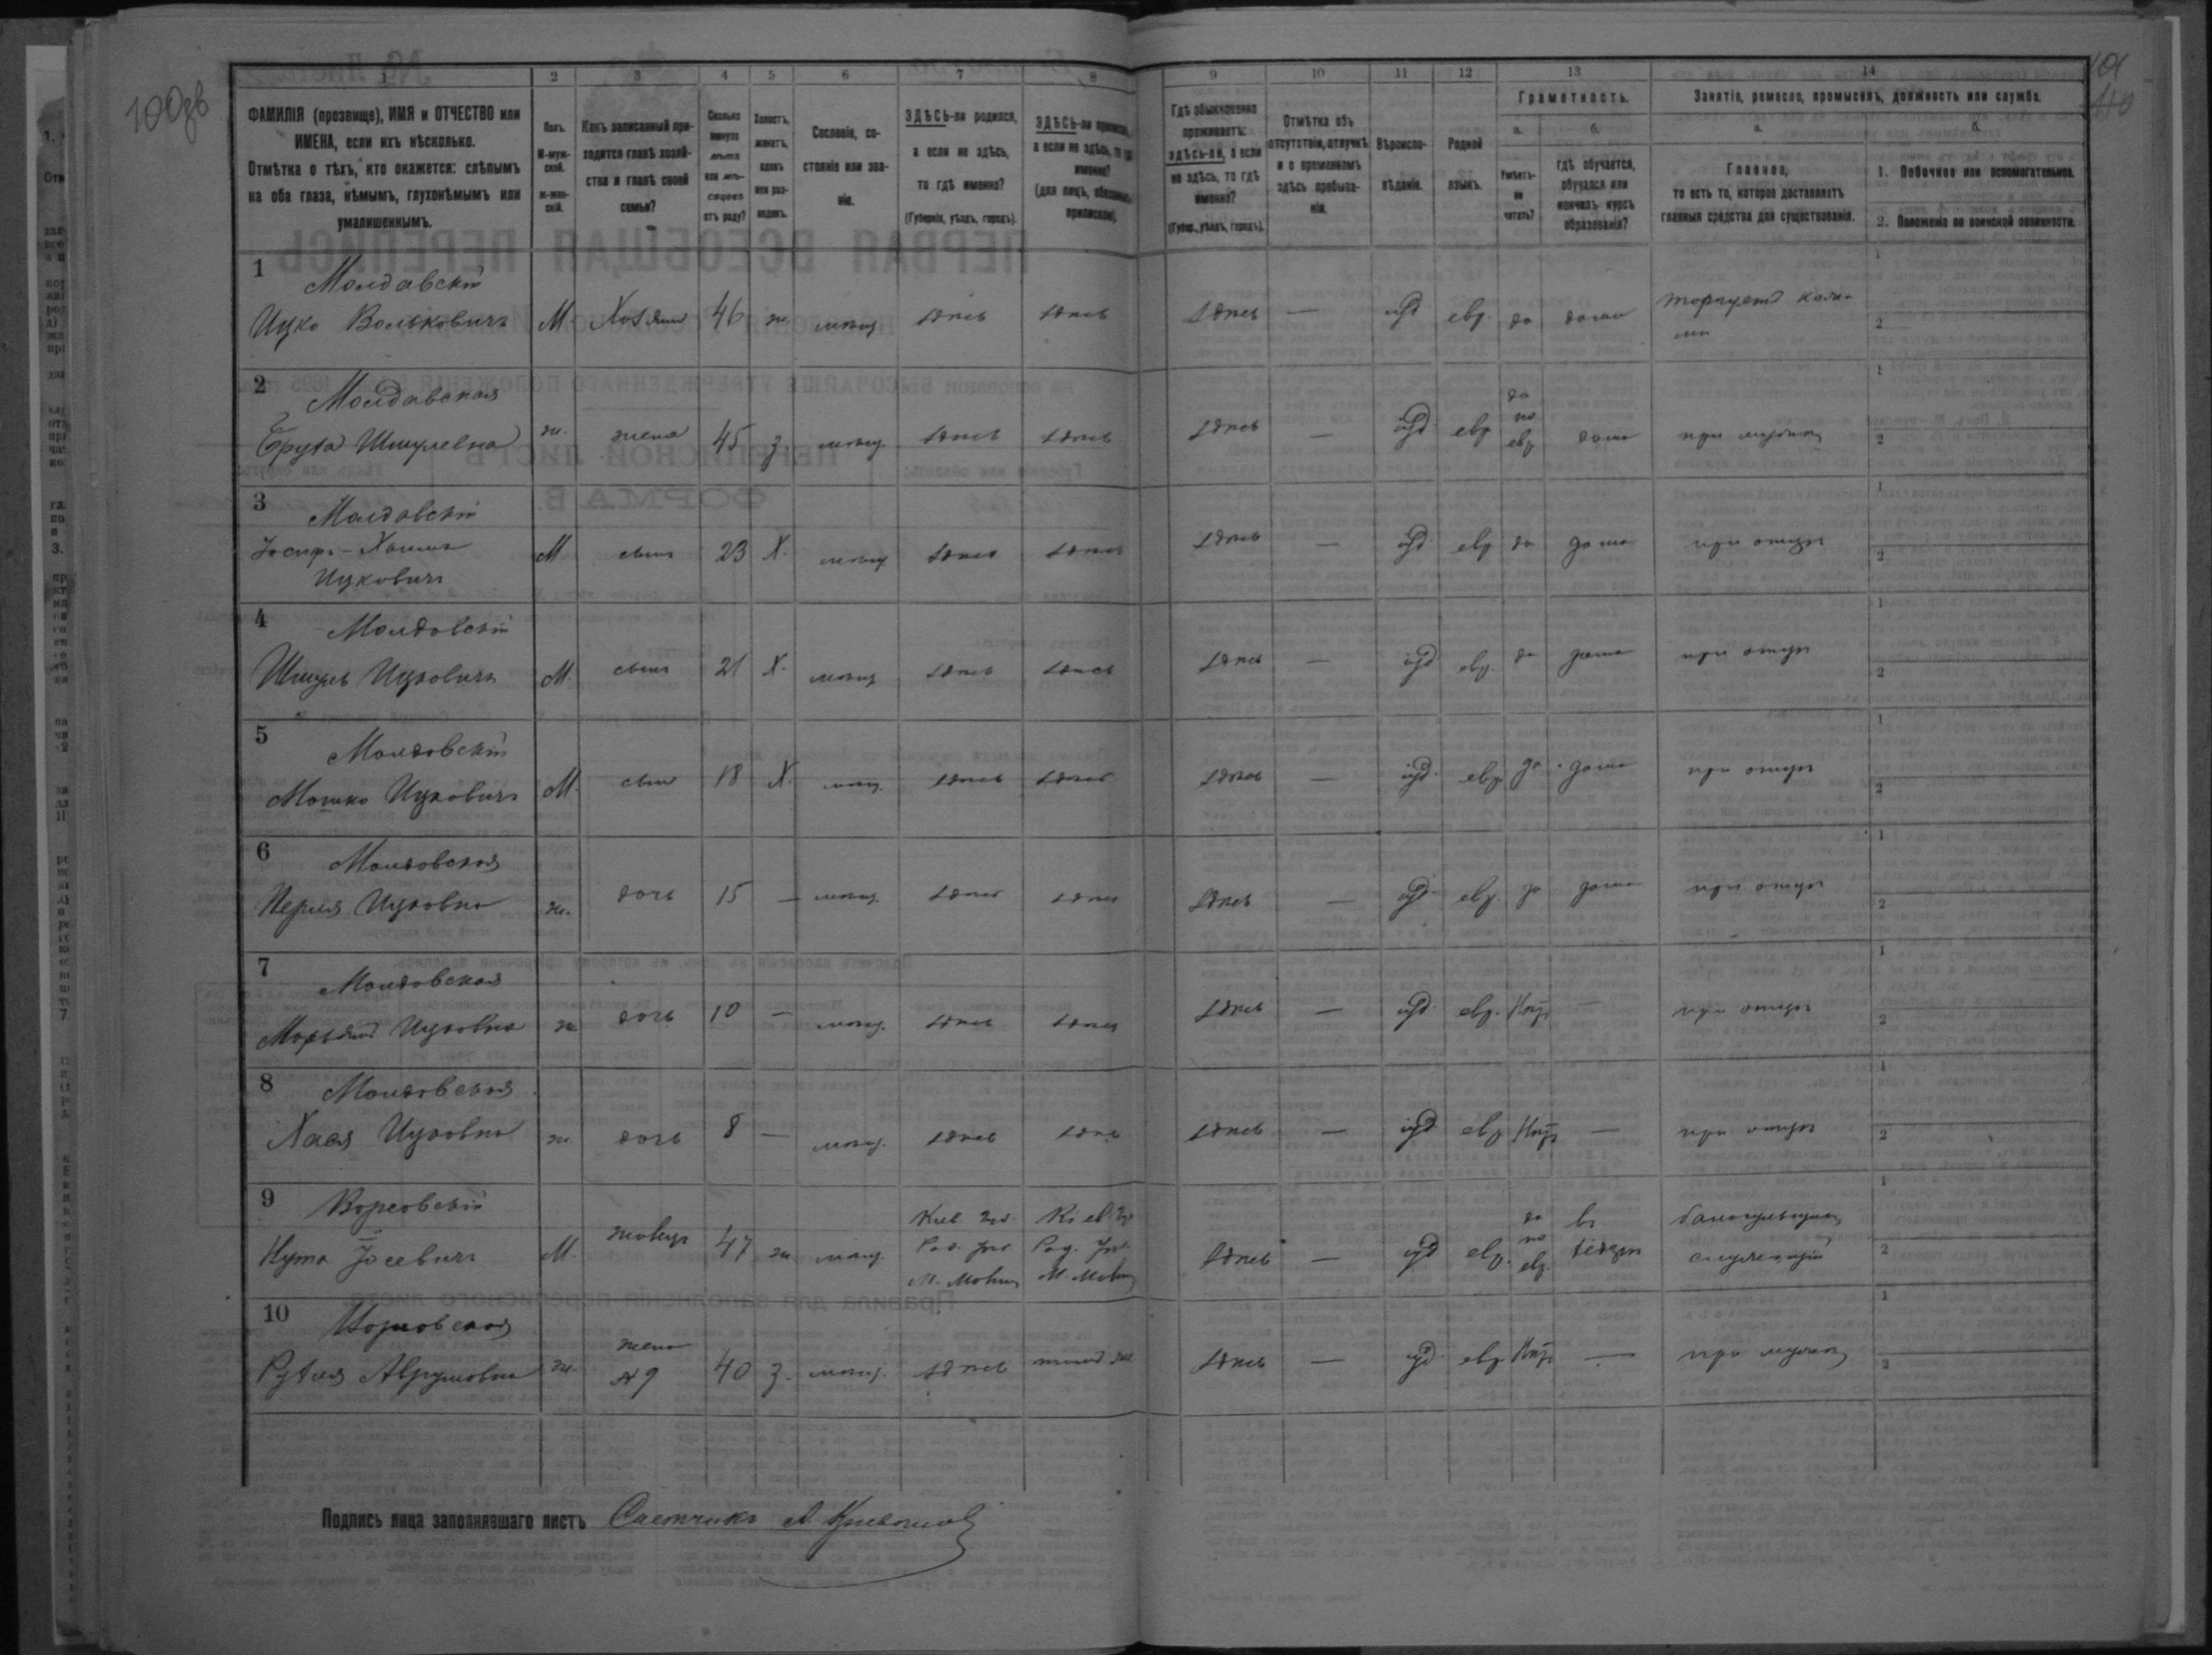 100об
101
110
1 2 3 4 5 6 7 8 9 10 11 12 13 14
ФАМИЛІЯ (прозвище), ИМЯ и ОТЧЕСТВО или
ИМЕНА, если ихъ нѣсколько.
Отмѣтка о тѣхъ, кто окажется: слѣпымъ
на оба глаза, нѣмымъ, глухонѣмымъ или
умалишеннымъ.
Полъ.
М-муж-
ской.
ж-жен-
скій.
Какъ записанный при-
ходится главѣ хозяй-
ства и главѣ своей
семьи?
Сколько
минуло
лѣтъ
или мѣ-
сяцевъ
отъ роду?
Холостъ,
женатъ,
вдовъ
или раз-
веденъ.
Сословіе, со-
стояніе или зва-
ніе.
ЗДѢСЬ-ли родился,
а если не здѣсь,
то гдѣ именно?
(Губернія, уѣздъ, городъ).
ЗДѢСЬ-ли приписанъ,
а если не здѣсь, то гдѣ
именно?
(для лицъ, обязанныхъ
припиской).
Гдѣ обыкновенно
проживаетъ:
здѣсь-ли, а если
не здѣсь, то гдѣ
именно?
(Губер., уѣздъ, городъ).
Отмѣтка объ
отсутствіи, отлучкѣ
и о временномъ
здѣсь пребыва-
ніи.
Вѣроиспо-
вѣданіе.
Родной
языкъ.
Грамотность.
а.
Умѣетъ-
ли
читать?
б.
гдѣ обучается,
обучался или
кончилъ курсъ
образованія?
Занятіе, ремесло, промыселъ, должность или служба.
а.
Главное,
то есть то, которое доставляетъ
главныя средства для существованія.
б.
1. Побочное или вспомогательное.
2. Положеніе по воинской повинности.
1 Молдавскій
Ицко Вольковичъ М. Хозяинъ 46 ж. мѣщ. здѣсь здѣсь здѣсь — іуд евр. да дома торгуетъ 1
2
2 Молдавская
Брута Шмулевна ж. жена 45 з. мѣщ. здѣсь здѣсь здѣсь — іуд евр да по евр. дома при мужѣ 1
2
3 Молдавскій
Іосифъ-Хаимъ
Ицковичъ М сынъ 23 Х. мѣщ здѣсь здѣсь здѣсь — іуд евр да дома при отцѣ 1
2
4 Молдовскій
Шмуль Ицковичъ М. сынъ 21 Х. мѣщ здѣсь здѣсь здѣсь — іуд евр. да дома при отцѣ 1
2
5 Молдовскій
Мошко Ицковичъ М. сынъ 18 Х. мѣщ. здѣсь здѣсь здѣсь — іуд. евр да дома при отцѣ 1
2
6 Молдовская
Перля Ицковна ж. дочь 15 — мѣщ. здѣсь здѣсь здѣсь — іуд. евр. да дома при отцѣ 1
2
7 Молдовская
Марьям Ицковна ж. дочь 10 — мѣщ. здѣсь здѣсь здѣсь — іуд. евр. Нѣтъ — при отцѣ 1
2
8 Молдовская
Хася Ицковна ж дочь 8 — мѣщ. здѣсь здѣсь здѣсь — іуд евр Нѣтъ — при отцѣ 1
2
9
Нута Іосевичъ М. жилецъ 47 ж мѣщ. Кіев. губ. Рад. уѣз. М. Кіев. губ Рад. уѣз. М. здѣсь — іуд евр. да по евр въ хедерѣ 1
2
10
Рухля Аврумовна ж. жена №9 40 з. мѣщ. здѣсь тамъ же здѣсь — іуд евр Нѣтъ — при мужѣ 1
2
Подпись лица заполнявшаго листъ Счетчикъ А.